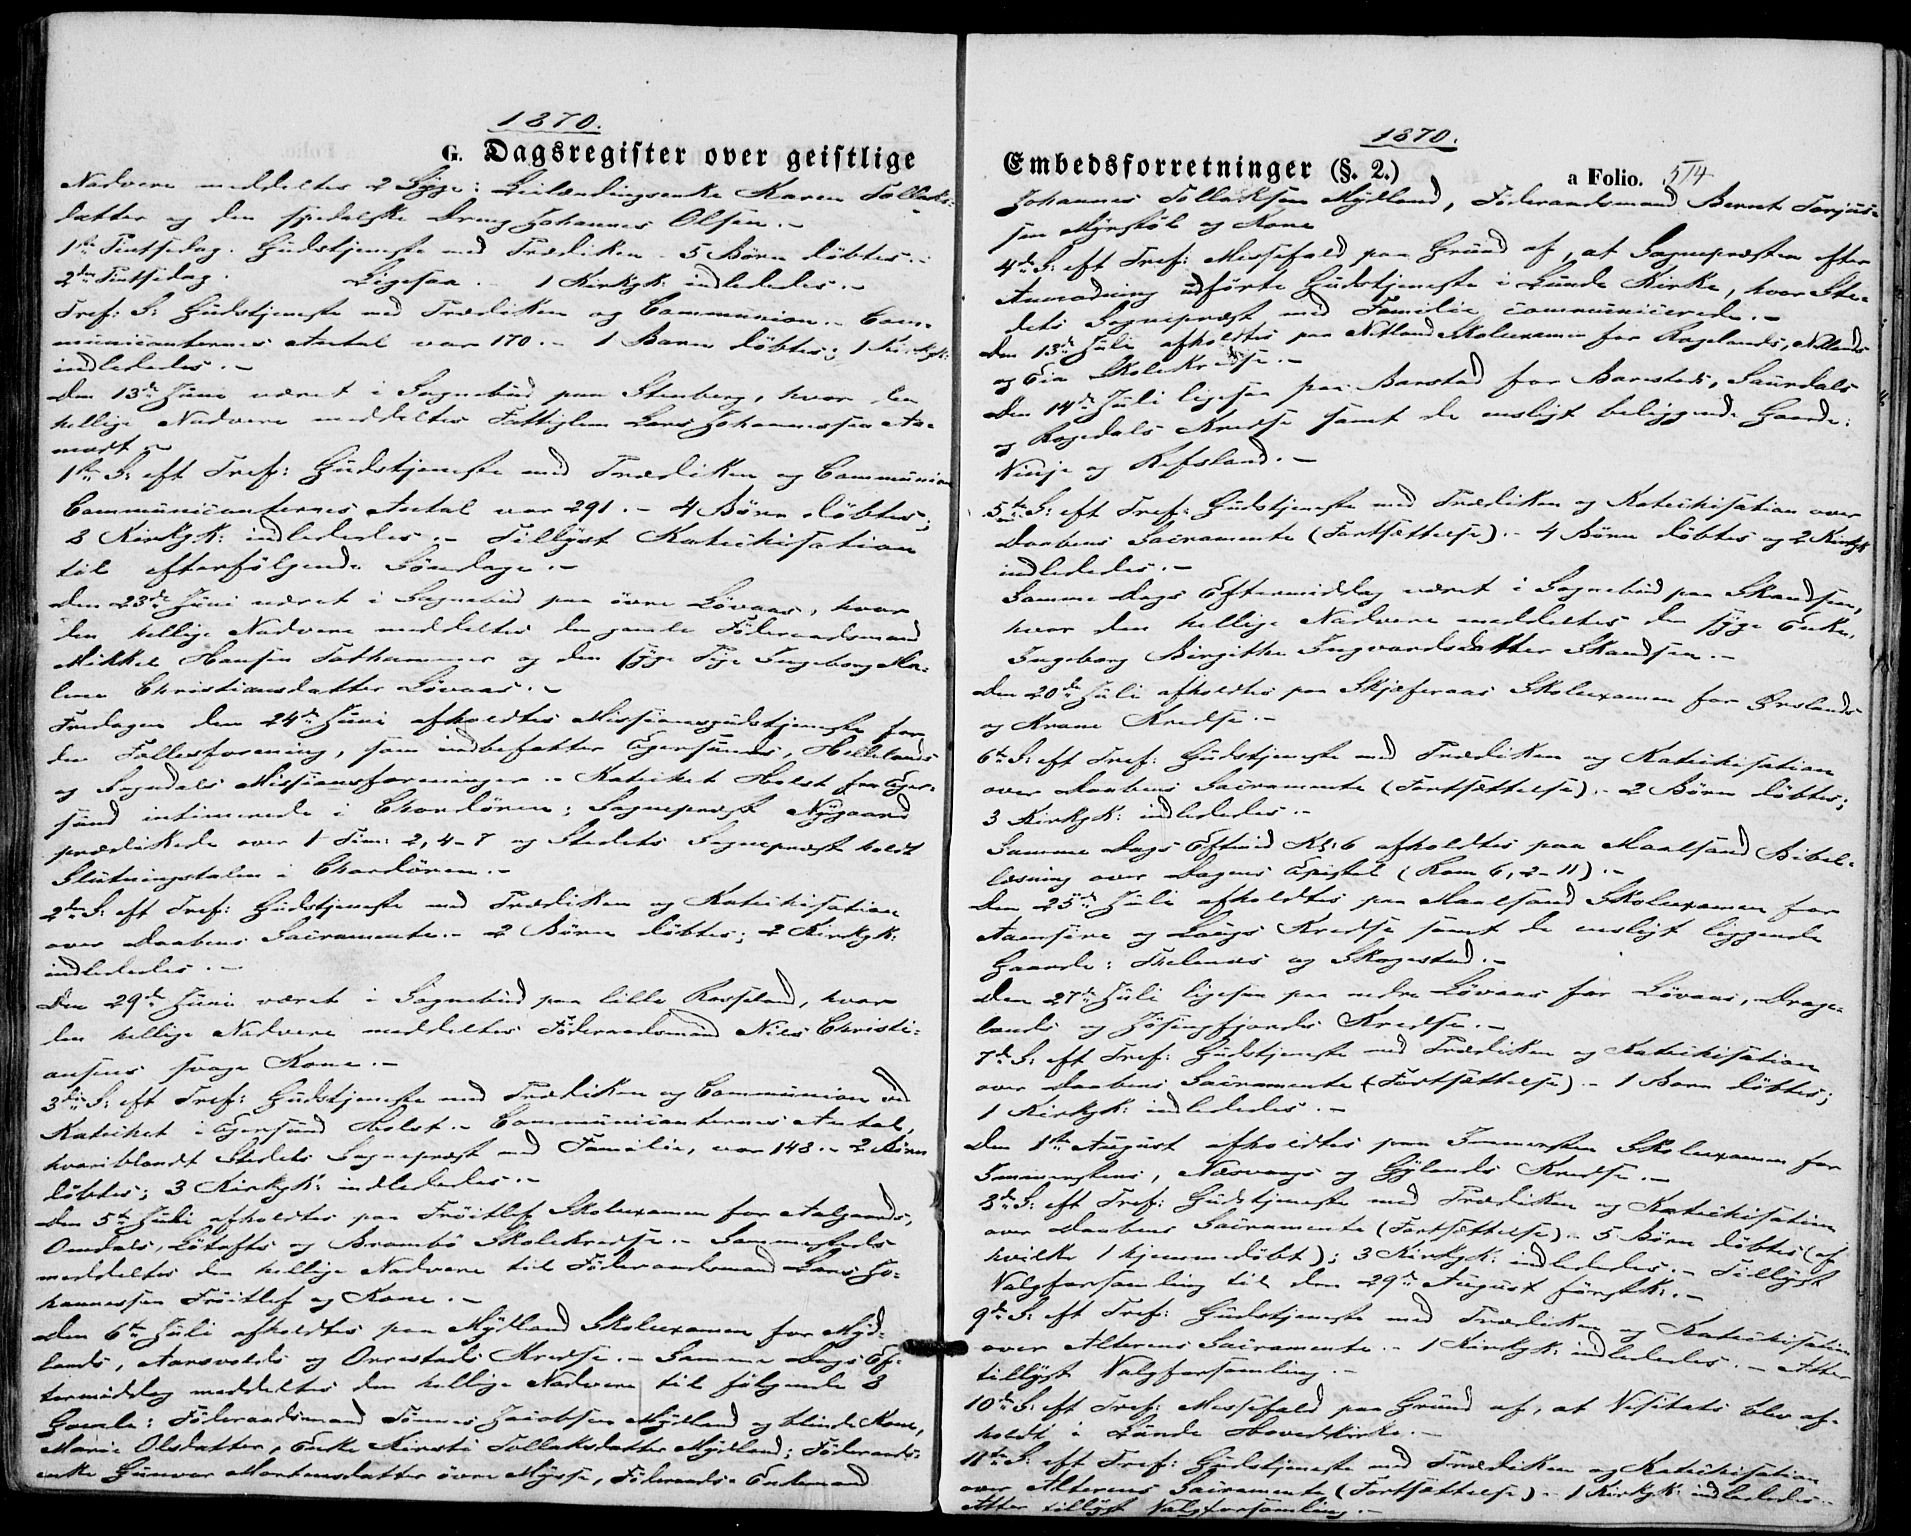 1870.
G. Dagsregister over geistlige
Nadvere meddeltes 2 Syge: Leilændingsenke Karen Tollaks-
datter og den spedalske Dreng Johannes Olsen.-
1ste Pintsedag. Gudstjeneste med Prædiken - 5 Børn döbtes.-
2den Pintsedag. Ligesaa. - 1 Kirkgk: indlededes.-
Tref: S: Gudstjeneste med Prædiken og Communion.- Com-
municanternes Antal var 170.- 1 Barn döbtes; 1 Kirkgk:
indlededes.-
Den 13de Juni været i Sognebud paa Stenberg, hvor den
hellige Nadvere meddeltes Fattiglem Lars Johannessen Aa-
modt.-
1ste S: eft Tref: Gudstjeneste med Prædiken og Communion
Communicanternes Antal var 291.- 4 Börn döbtes;
8 Kirkgk: indlededes.- Tillyst Katechisation
til efterfölgende Söndage.-
Den 23de Juni været i Sognebud paa övre Lövaas, hvor
den hellige Nadvere meddeltes den gamle Föderaadsmand
Mikkel Hansen Tothammer og den syge Pige Ingeborg Ma-
lene Christiansdatter Lövaas.-
Fredagen den 24de Juni afholdtes Missionsgudstjeneste for
den Fællesforening, som indbefatter Egersunds, Hellelands
og Sogndals Missionsforeninger.- Katechet Holst fra Eger-
sund intimerede i Chordören; Sognepræst Nygaard
prædikede over 1 Tim: 2, 4-7 og Stedets Sognepræst holdt
Slutningstalen i Chordören.-
2den S: eft Tref: Gudstjeneste med Prædiken og Katechisation
over Daabens Sacramente.- 2 Börn döbtes; 2 Kirkgk:
indlededes.-
Den 29de Juni været i Sognebud paa lille Rosseland, hvor
den hellige Nadvere meddeltes Föderaadsmand Niels Christi-
ansens svage Kone.-
3die S: eft Tref: Gudstjeneste med Prædiken og Communion ved
Katechet i Egersund Holst.- Communicanternes Antal,
hvoriblandt Stedets Sognepræst med Familie, var 148.- 2 Börn
döbtes; 3 Kirkgk: indlededes.-
Den 5te Juli afholdtes paa Fröitlef Skolexamen for Aalgaards,
Omdals, Lötofts og Brambö Skolekredse.- Sammesteds
meddeltes den hellige Nadvere til Föderaadsmand Lars Jo-
hannessen Fröitlef og Kone.-
Den 6te Juli afholdtes paa Mydland Skolexamen for Myd-
lands, Aarsvolds og Orrestads Kredse.- Samme Dags Ef-
termiddag meddeltes den hellige Nadvere til fölgende 8
Gamle: Föderaadsmand Tönnes Jacobsen Mydland og blinde Kone,
Marie Olsdatter, Enke Kirsti Tollaksdatter Mydland; Föderaads-
enke Gunvor Mortensdatter övre Mysse, Föderaads-Enkemand
1870.
Embedsforretninger (§. 2.)
a Folio. 514
Johannes Tollaksen Mydland, Föderaadsmand Bernt Torjus-
sen Myrstöl og Kone
4de S: eft Tref: Messefald paa Grund af, at Sognepræsten efter
Anmodning udförte Gudstjeneste i Lunde Kirke, hvor Ste-
dets Sognepræst med Familie communicerede.-
Den 13de Juli afholdtes paa Netland Skolexamen for Rægelands, Netlands
og Eia Skolekredse.-
Den 14de Juli ligesaa paa Barstad for Barstads, Saurdals
og Rægedals Kredse samt de ensligt beliggende Gaarde:
Ninje og Refsland.-
5te S: eft Tref: Gudstjeneste med Prædiken og Katechisation over
Daabens Sacramente (Fortsættelse).- 4 Börn döbtes og 2 Kirkgk
indlededes.-
Samme Dags Eftermiddag været i Sognebud paa Skandsen,
hvor den hellige Nadvere meddeltes den syge Enke,
Ingeborg Birgithe Ingvardsdatter Skandsen.-
Den 20de Juli afholdtes paa Skjæferaas Skolexamen for Orslands
og Krane Kredse.-
6te S: eft Tref: Gudstjeneste med Prædiken og Katechisation
over Daabens Sacramente (Fortsættelse).- 2 Börn döbtes;
3 Kirkgk: indlededes.-
Samme Dags Eftmid Kl: 6 afholdtes paa Maalsund Bibel-
læsning over Dagens Epistel (Rom 6, 2-11).-
Den 25de Juli afholdtes paa Maalsund Skolexamen for
Aamsöre og Laugs Kredse samt de ensligt liggende
Gaarde: Thelenes og Skogestad.-
Den 27de Juli ligesaa paa nedre Lövaas for Lövaas, Drage-
lands og Jösingfjords Kredse.-
7de S: eft Tref: Gudstjeneste med Prædiken og Katechisation
over Daabens Sacramente (Fortsættelse).- 1 Barn döbtes;
1 Kirkgk: indlededes.-
Den 1ste August afholdtes paa Immersten Skolexamen for
Immerstens, Næsvaags og Gylands Kredse.-
8de S: eft Tref: Gudstjeneste med Prædiken og Katechisation
over Daabens Sacramente (Fortsættelse).- 5 Börn döbtes (af
hvilke 1 hjemmedöbt); 3 Kirkgk: indlededes.- Tillyst
Valgforsamling til den 29de August förstk:.-
9de S: eft Tref: Gudstjeneste med Prædiken og Katechisation
over Alterens Sacramente.- 1 Kirkgk: indlededes.- Atter
tillyst Valgforsamling.-
10de S: eft Tref: Messefald paa Grund af, at Visitats blev af-
holdt i Lunde Hovedkirke.-
11te S: eft Tref: Gudstjeneste med Prædiken og Katechisation
over Alterens Sacramente (Fortsættelse).- 1 Kirkgk: indlededes.-
Atter tillyst Valgforsamling.-